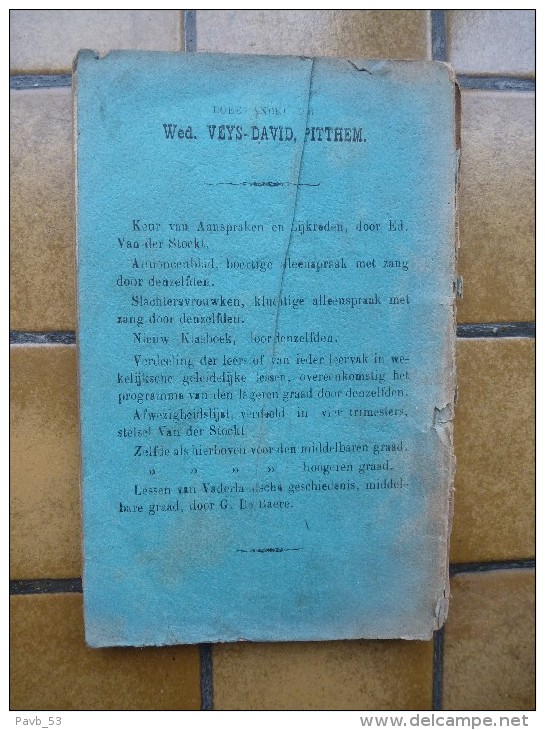 Wed. VEYS-DAVID, PITTHEM.
Keur van Aanspraken en Lijkreden, door Ed.
Van der Stockt.
Annoncenblad, boertige alleenspraak met zang
door denzelfden.
Slachtersvrouwken, kluchtige alleenspraak met
zang door denzelfden.
Nieuw Klasboek, door denzelfden.
Verdeeling der leerstof van ieder leervak in we-
kelijksche geleidelijke lessen, overeenkomstig het
programma van den lageren graad door denzelfden.
Afwezigheidslijst, verdeeld in vier trimesters,
stelsel Van der Stockt
Zelfde als hierboven voor den middelbaren graad.
„ „ „ „ hoogeren graad.
Lessen van Vaderlandsche geschiedenis, middel-
bare graad, door G. De Baere.
Pavb_53
www.delcampe.net